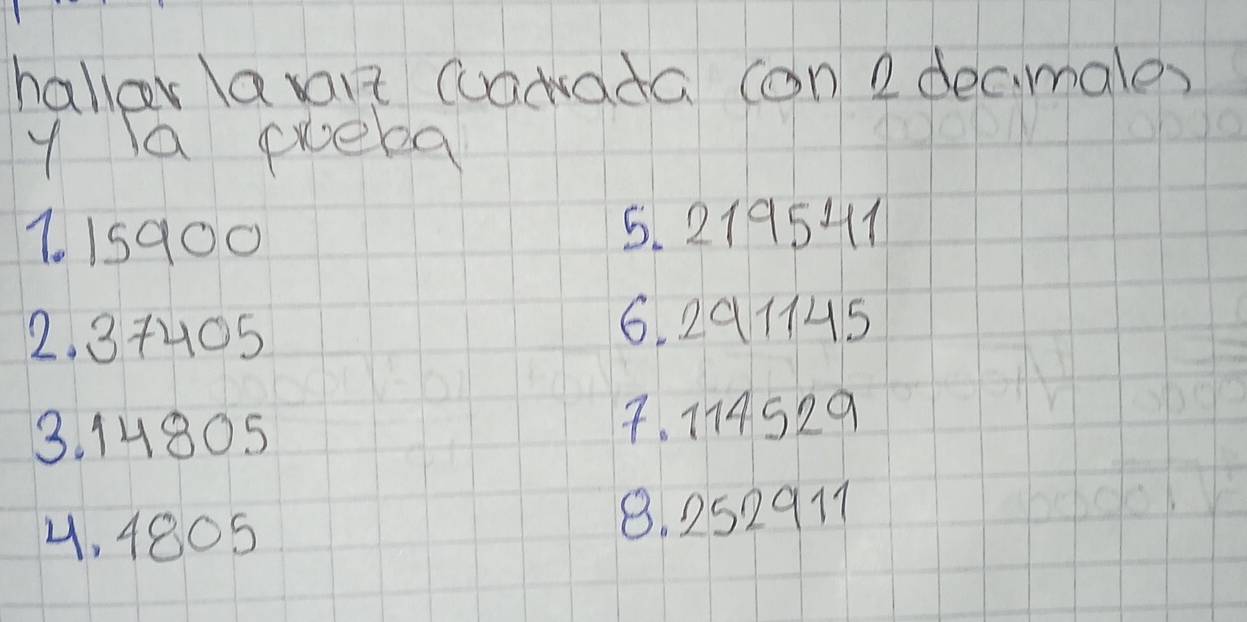 hallar la raiz cuadrada con 2 decimales
y la prueba
1. 15900
2. 37405
3. 14805
4. 1805
5. 219541
6. 291145
7. 114529
8. 252911